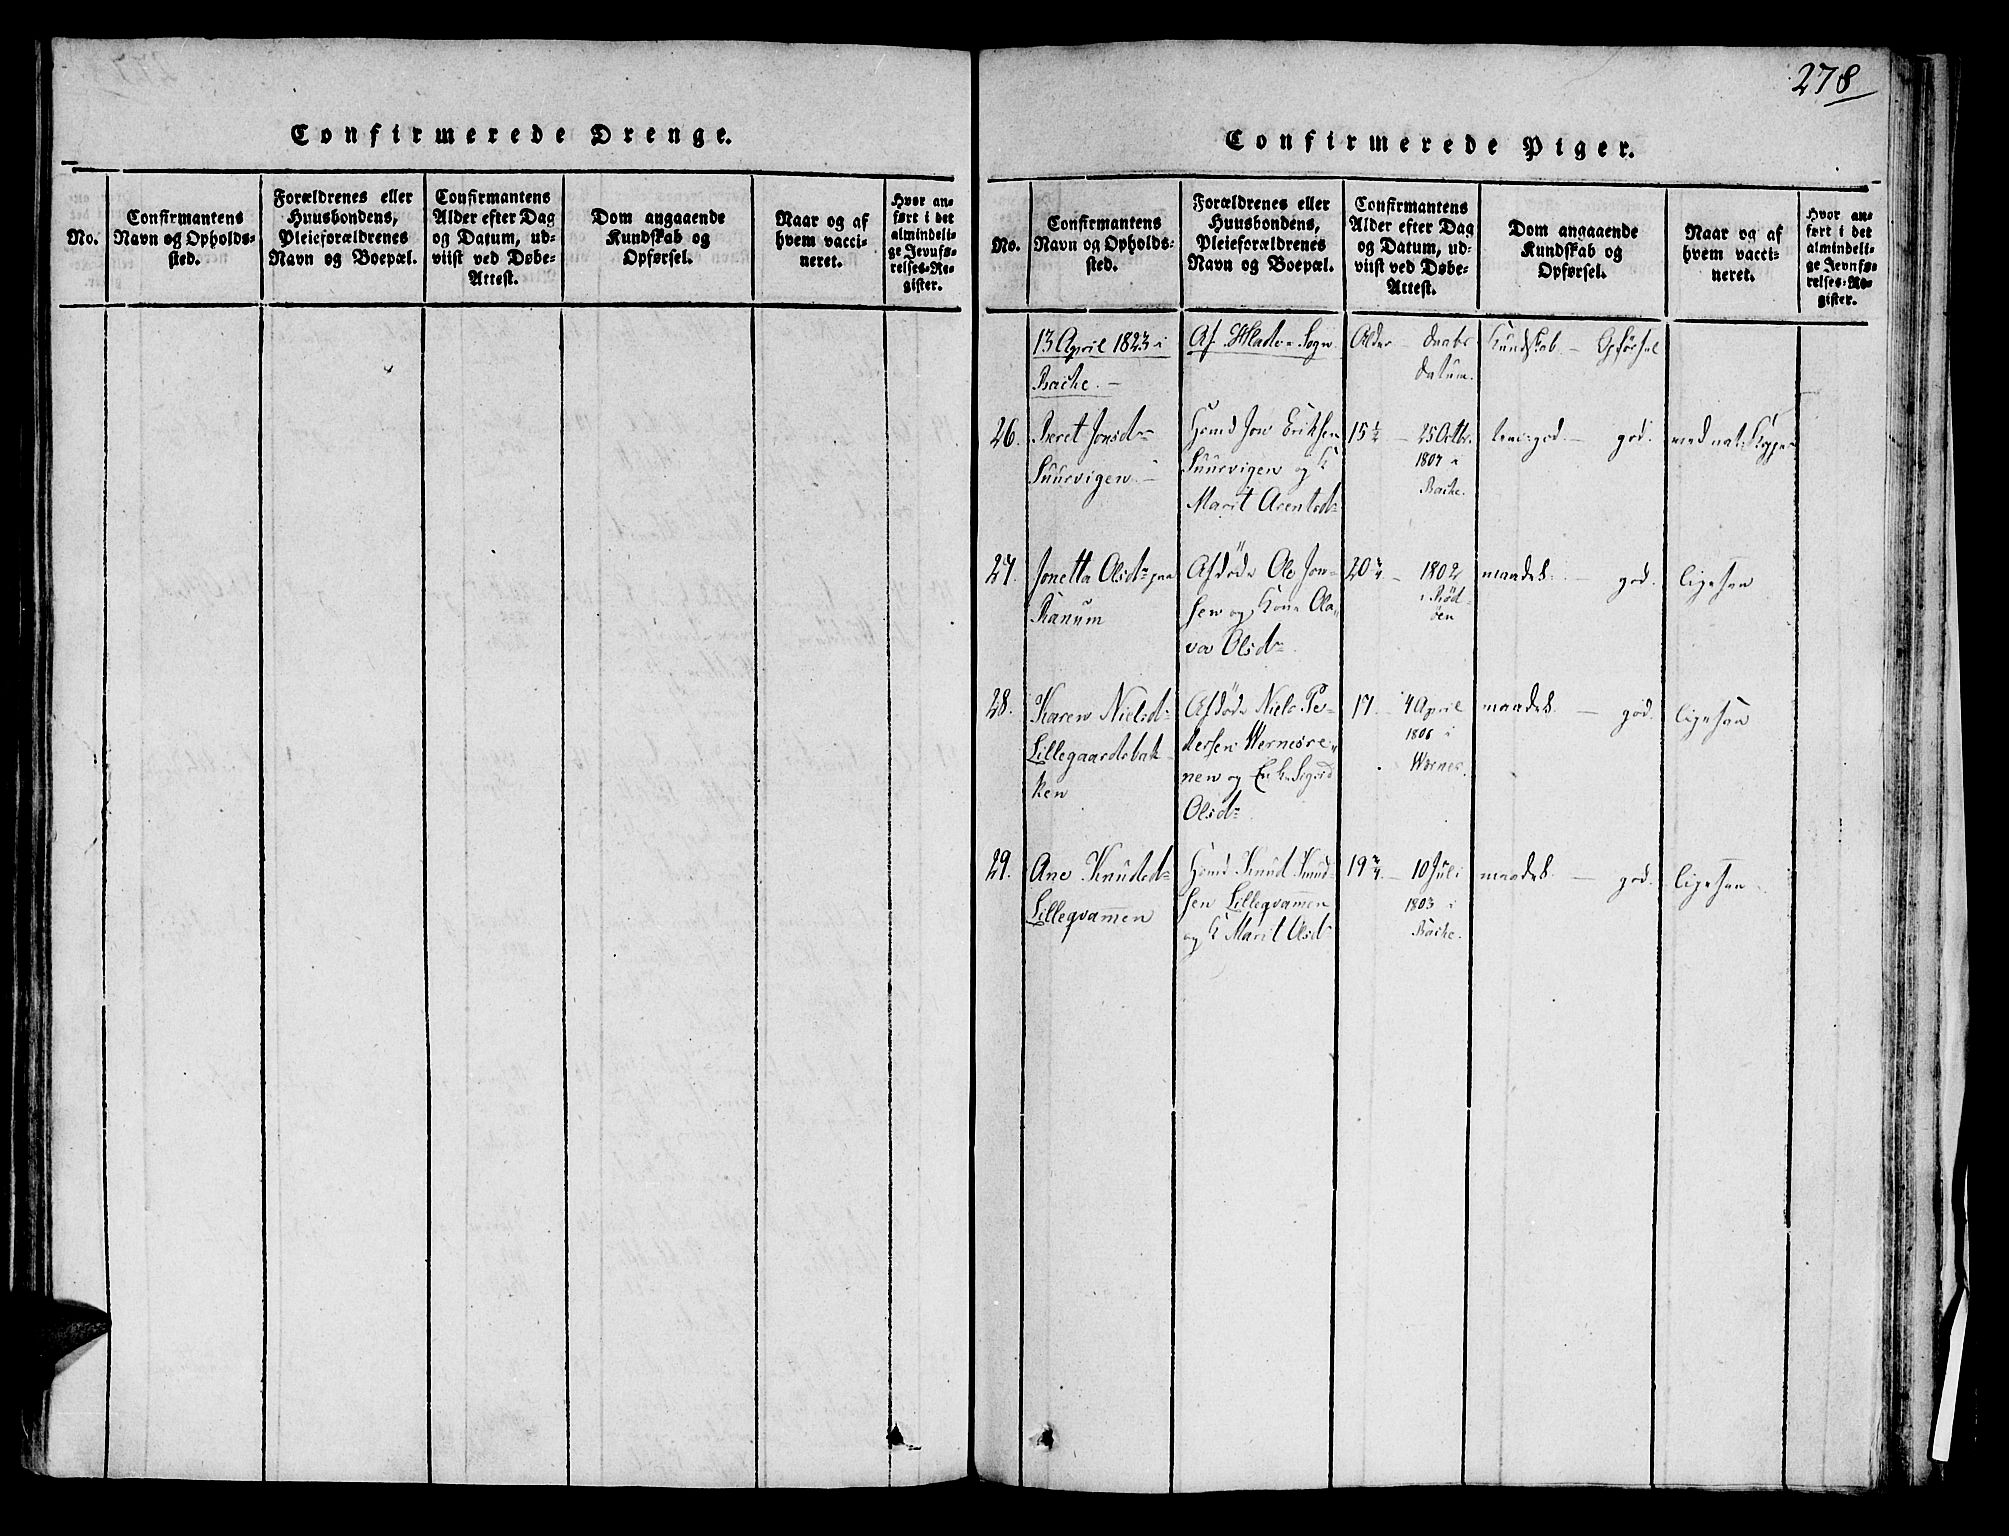 278
Confirmerede Drenge.
No.
Confirmantens
Navn og Opholds-
sted.
Forældrenes eller
Huusbondens,
Pleieforældrenes
Navn og Boepæl.
Confirmantens
Alder efter Dag
og Datum, ud-
viist ved Døbe-
Attest.
Dom angaaende
Kundskab og
Opførsel.
Naar og af
hvem vacci-
neret.
Hvor an-
ført i det
almindeli-
ge Jevnfø-
relses-Re-
gister.
Confirmerede Piger.
No.
Confirmantens
Navn og Opholds-
sted.
Forældrenes eller
Huusbondens,
Pleieforældrenes
Navn og Boepæl.
Confirmantens
Alder efter Dag
og Datum, ud-
viist ved Døbe-
Attest.
Dom angaaende
Kundskab og
Opførsel.
Naar og af
hvem vacci-
neret.
Hvor an-
ført i det
almindeli-
ge Jevnfø-
relses-Re-
gister.
13 April 1823 i
Bache. —
Af Hlade Sogn
Alder — Daabs
Datum.
Kundskab — Opførsel
26.
Beret Jonsd
Suurvigen —
Jon Eriksen
Suurvigen og K
Marit Arentsd
15 1/2 — 25 Octbr
1807 i
Bache.
god — god.
med nat: Kopper
27.
Jonetta Olsd paa
Ranum
Afdøde Ole Jon-
sen og Kone Ola-
va Olsd
20 3/4 — 1802
i Rød-
øen
maadel. — god.
ligesaa
28.
Karen Nielsd
Lillegaardsbak-
ken
Afdøde Niels Pe-
dersen Wernesre-
nen og Enke Sigrid
Olsd
17 — 4 April
1806 i
Wernes.
maadel. — god.
ligesaa
29.
Ane Knudsd
Lillegvamen
Knud Knud-
sen Lillegvamen
og K Marit Olsd
19 3/4 — 10 Juli
1803 i
Bache.
maadel. — god.
ligesaa